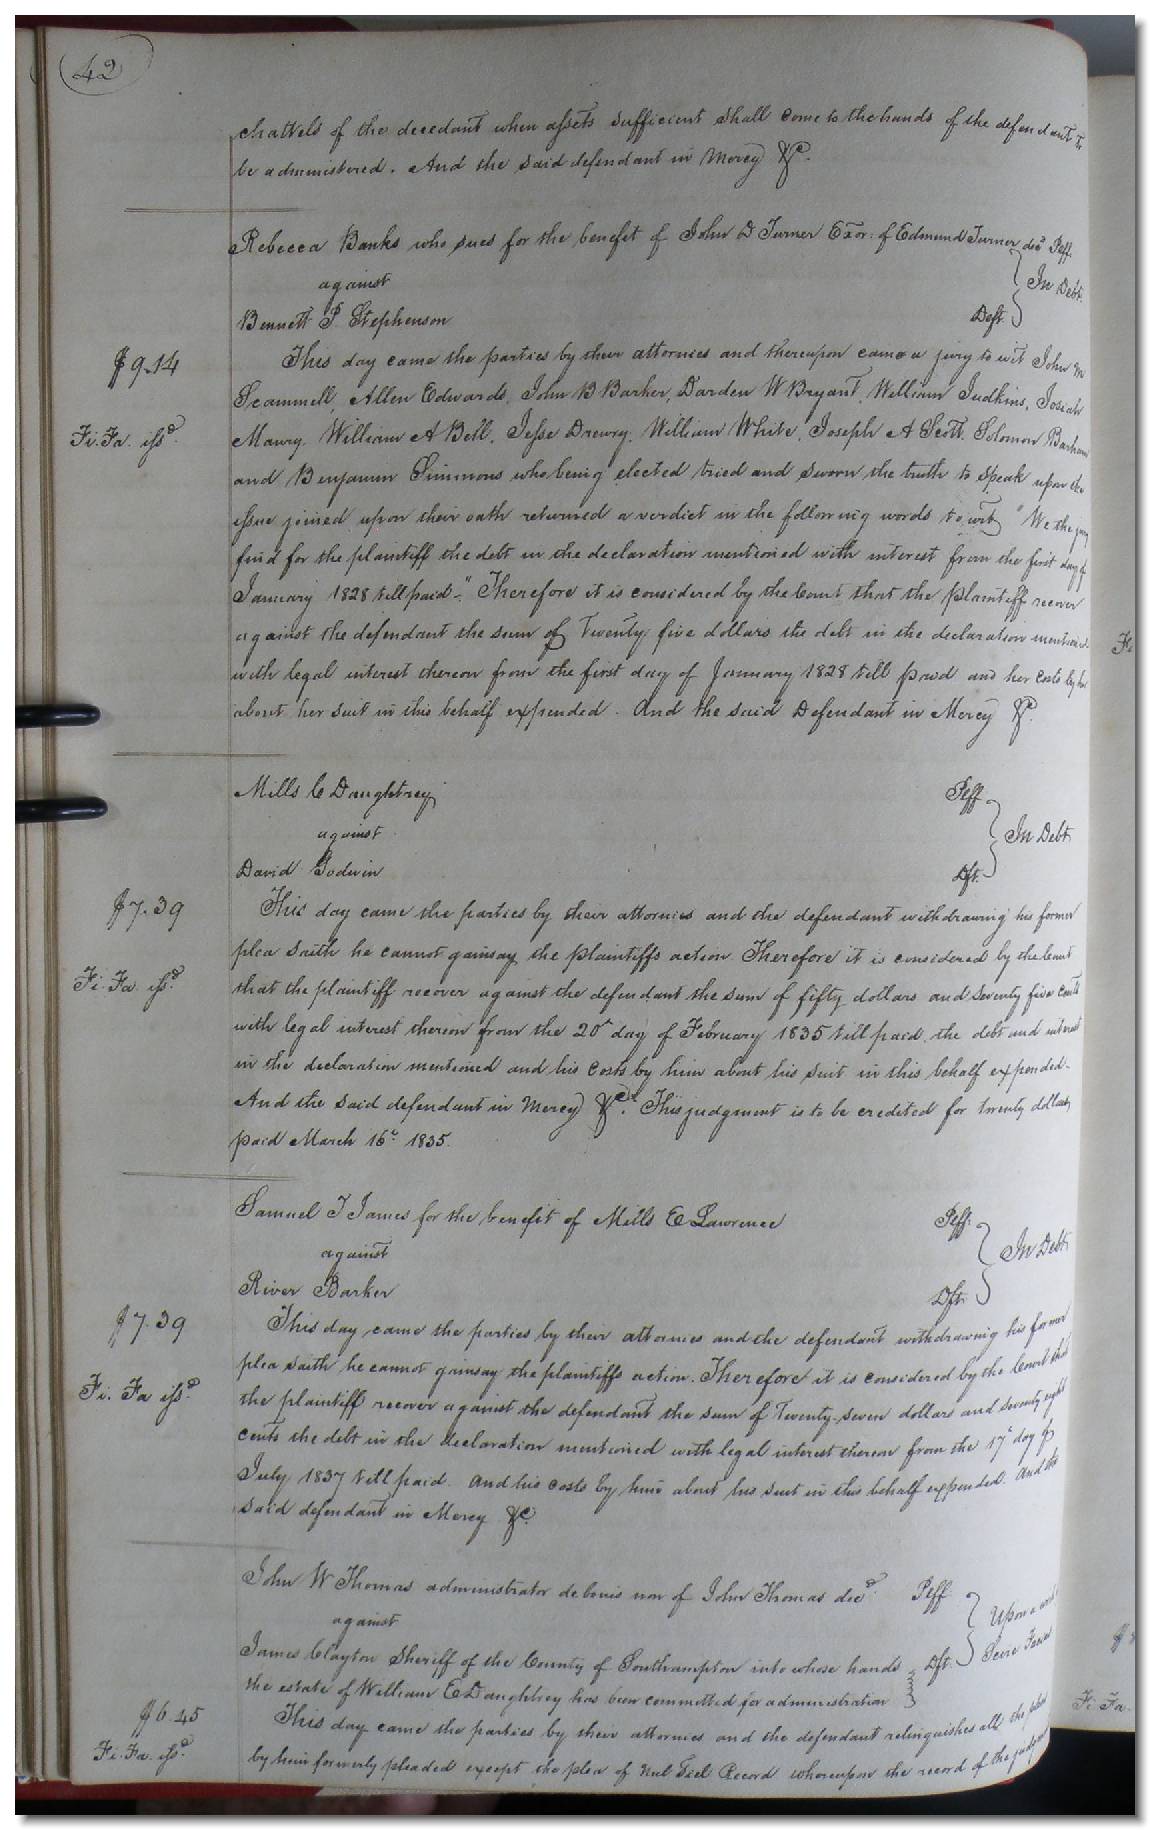 42
chattels of the decedant when assets sufficient shall come to the hands of the defendant to
be administered. And the said defendant in Mercy &c.
Rebecca Banks who sues for the benefit of John D Turner Exor: of Edmund Turner decd Peff.
against
In Debt.
Bennett P Stephenson Deft
$9.14
This day came the parties by their attornies and thereupon came a jury to wit John M
Scammell, Allen Edwards, John B Barker, Darden W Bryant, William Judkins, Josiah
Fi. Fa. issd.
Maury, William A Bell, Jesse Drewry, William White, Joseph A Scott, Solomon Barham
and Benjamin Simmons who being elected tried and sworn the truth to speak upon the
issue joined upon their oath returned a verdict in the following words to wit "We the jury
find for the plaintiff the debt in the declaration mentioned with interest from the first day of
January 1828 till paid." Therefore it is considered by the Court that the plaintiff recover
against the defendant the sum of Twenty five dollars the debt in the declaration mentioned
with legal interest thereon from the first day of January 1828 till paid and her costs by her
about her suit in this behalf expended. And the said Defendant in Mercy &c.
Mills C Daughtrey Peff
against
In Debt
David Godwin Dft.
$7.39
This day came the parties by their attornies and the defendant withdrawing his former
plea saith he cannot gainsay the plaintiffs action. Therefore it is considered by the Court
Fi. Fa. issd.
that the plaintiff recover against the defendant the sum of fifty dollars and seventy five cents
with legal interest thereon from the 20th day of February 1835 till paid, the debt and interest
in the declaration mentioned and his costs by him about his suit in this behalf expended.
And the said defendant in Mercy &c. This judgment is to be credited for twenty dollars
paid March 16th 1835.
Samuel T James for the benefit of Mills E Lawrence Peff.
against
In Debt.
River Barker Dft.
$7.39
This day came the parties by their attornies and the defendant withdrawing his former
plea saith he cannot gainsay the plaintiffs action. Therefore it is considered by the Court that
Fi. Fa issd.
the plaintiff recover against the defendant the sum of Twenty-seven dollars and seventy eight
cents the debt in the declaration mentioned with legal interest thereon from the 17th day of
July 1837 till paid. And his costs by him about his suit in this behalf expended. And the
said defendant in Mercy &c.
John W Thomas administrator de bonis non of John Thomas decd. Peff
against
Upon a writ
Scire Facias
James Clayton Sheriff of the County of Southampton into whose hands Dft.
the estate of William E Daughtrey has been committed for administration
$6.45
This day came the parties by their attornies and the defendant relinquishes all the pleas
Fi. Fa. issd.
by him formerly pleaded except the plea of Nul Tiel Record whereupon the record of the judgment
Fi. Fa.